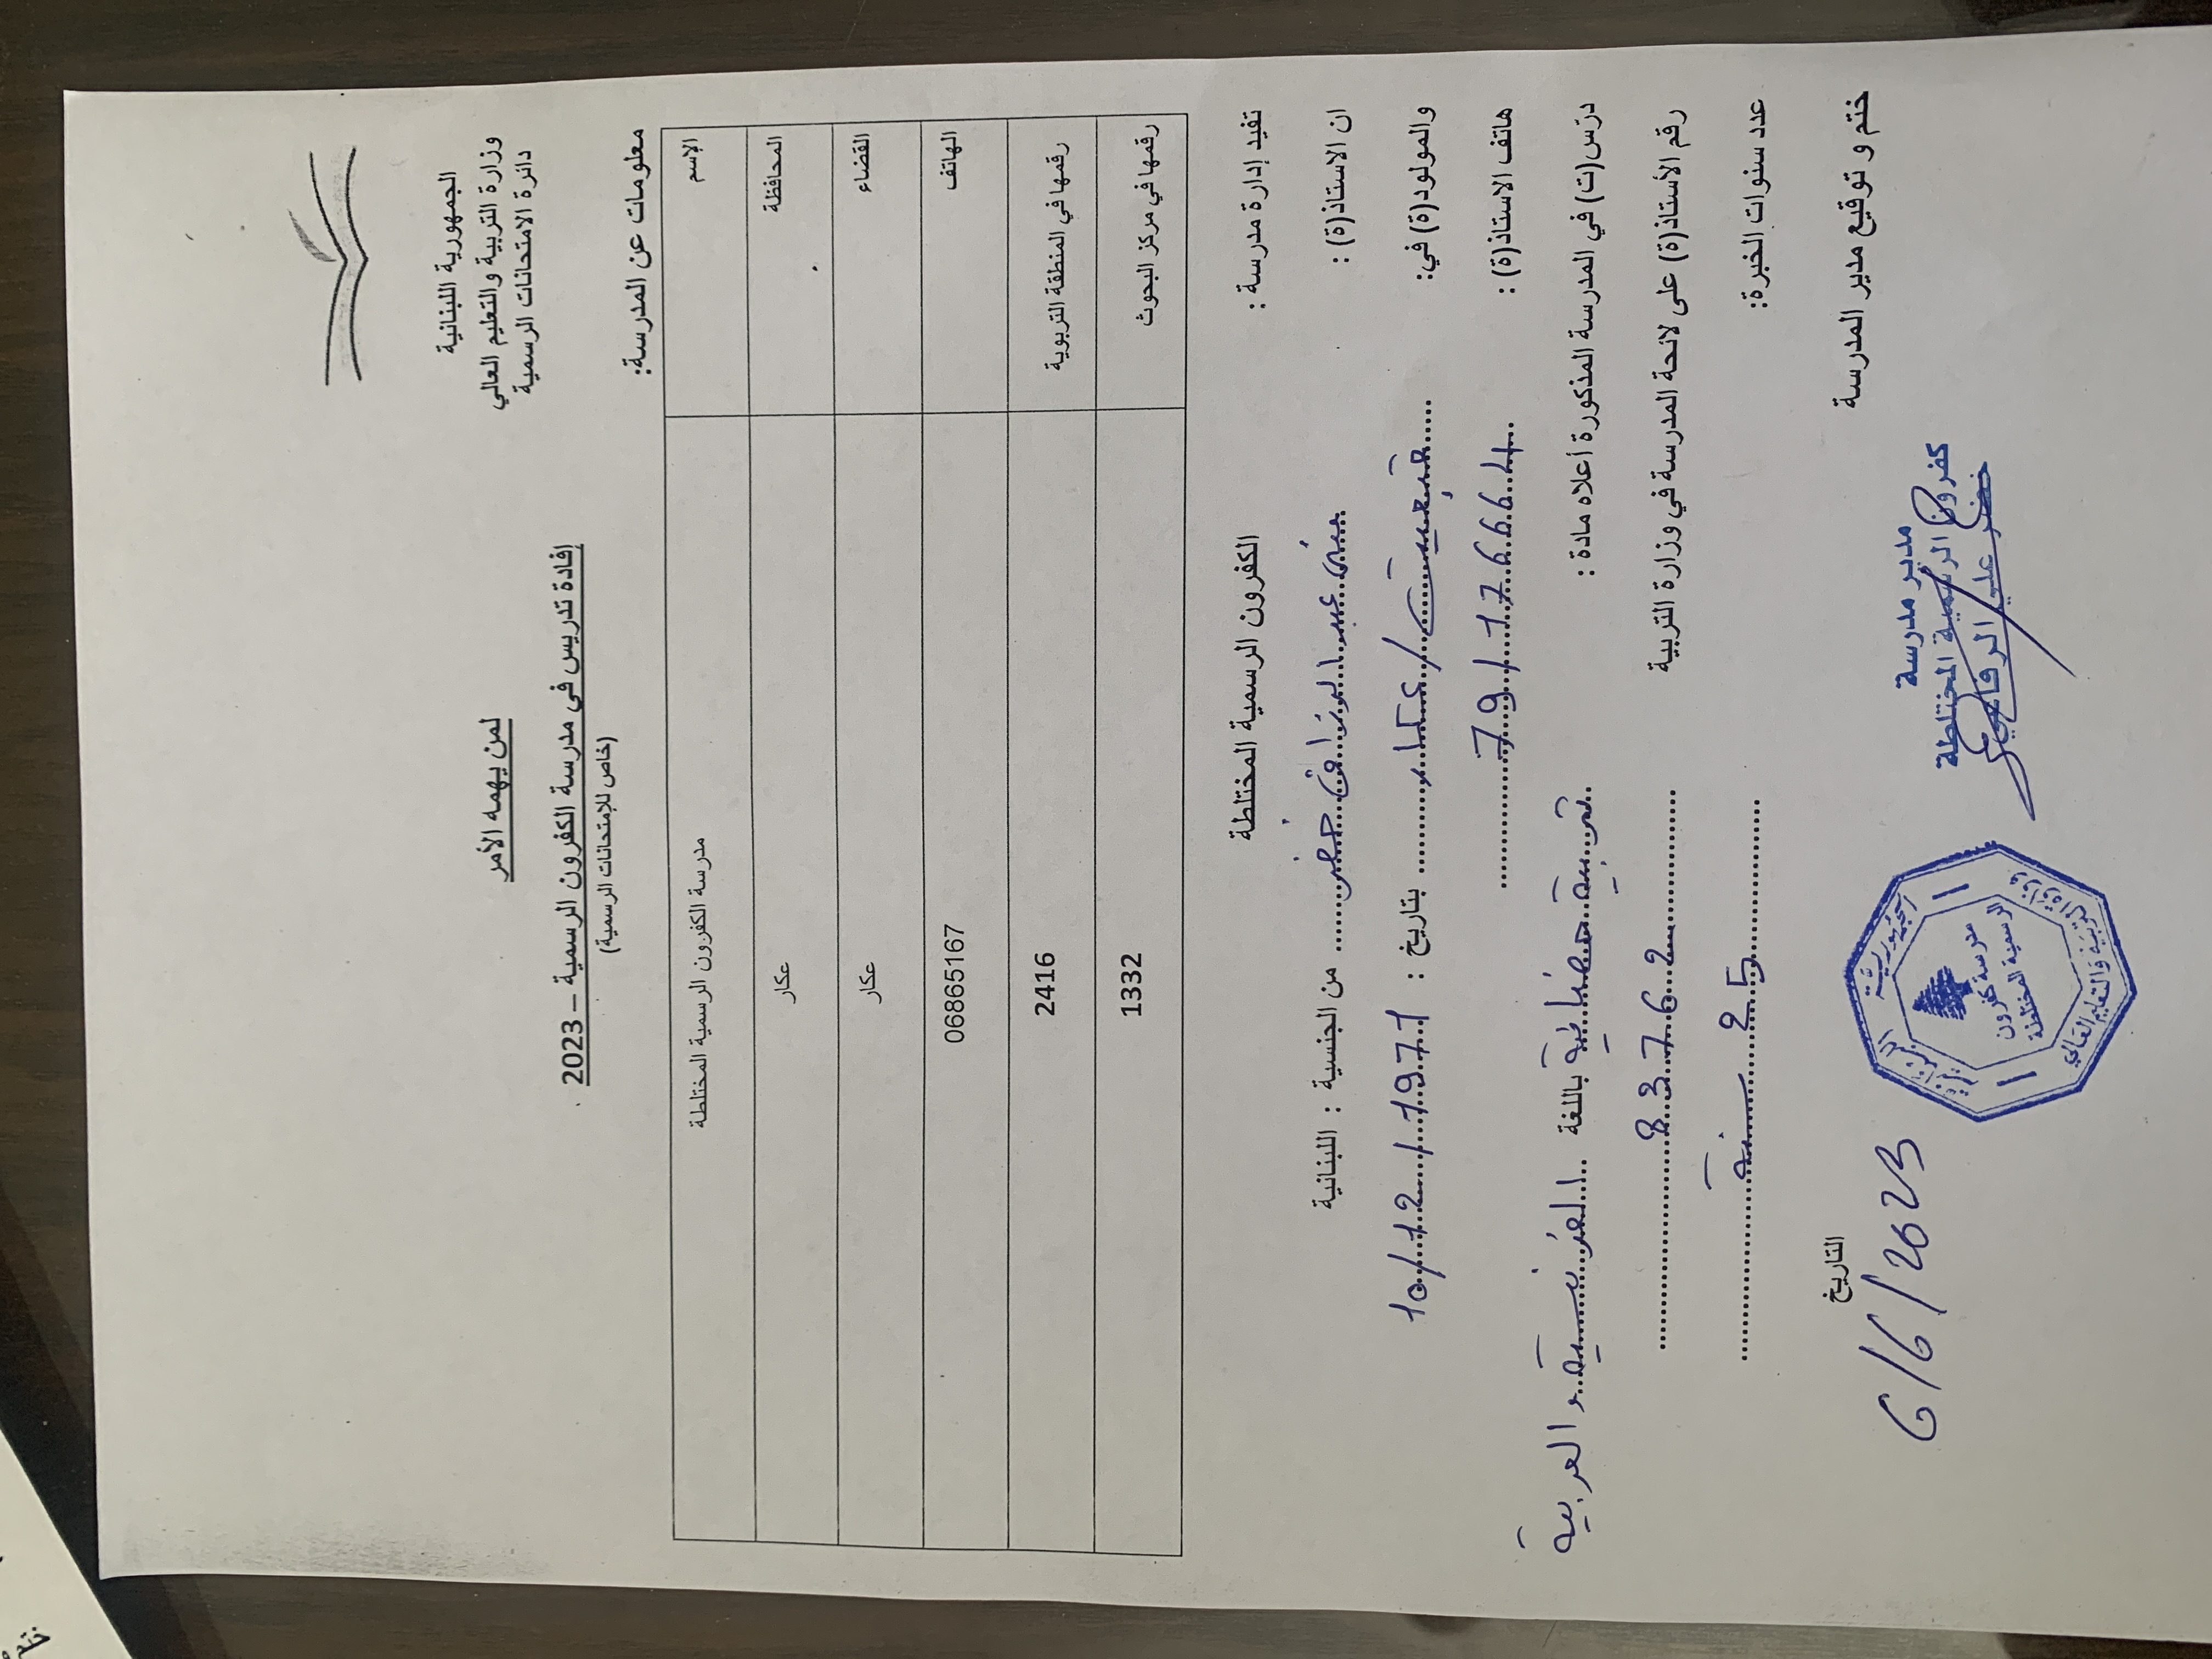 الجمهورية اللبنانية
وزارة التربية والتعليم العالي
دائرة الامتحانات الرسمية
لمن يهمه الأمر
إفادة تدريس في مدرسة الكفرون الرسمية – 2023
(خاص للإمتحانات الرسمية)
معلومات عن المدرسة:
الإسم مدرسة الكفرون الرسمية المختلطة
المحافظة عكار
القضاء عكار
الهاتف 06865167
رقمها في المنطقة التربوية 2416
رقمها في مركز البحوث 1332
تفيد إدارة مدرسة : الكفرون الرسمية المختلطة
ان الاستاذ(ة) : عبد الرزاق خضر من الجنسية : اللبنانية
والمولود(ة) في: عكار بتاريخ : 10/12/1977
هاتف الاستاذ(ة) : 79/176664
درّس(ت) في المدرسة المذكورة أعلاه مادة : تربية حضانية باللغة الفرنسية والعربية
رقم الأستاذ(ة) على لائحة المدرسة في وزارة التربية 83762
عدد سنوات الخبرة: 25 سنة
ختم و توقيع مدير المدرسة التاريخ
6/6/2023
مدير مدرسة
كفرون الرسمية المختلطة
خضر علي الرفاعي
الجمهورية اللبنانية
وزارة التربية والتعليم العالي
مدرسة كفرون
الرسمية المختلطة